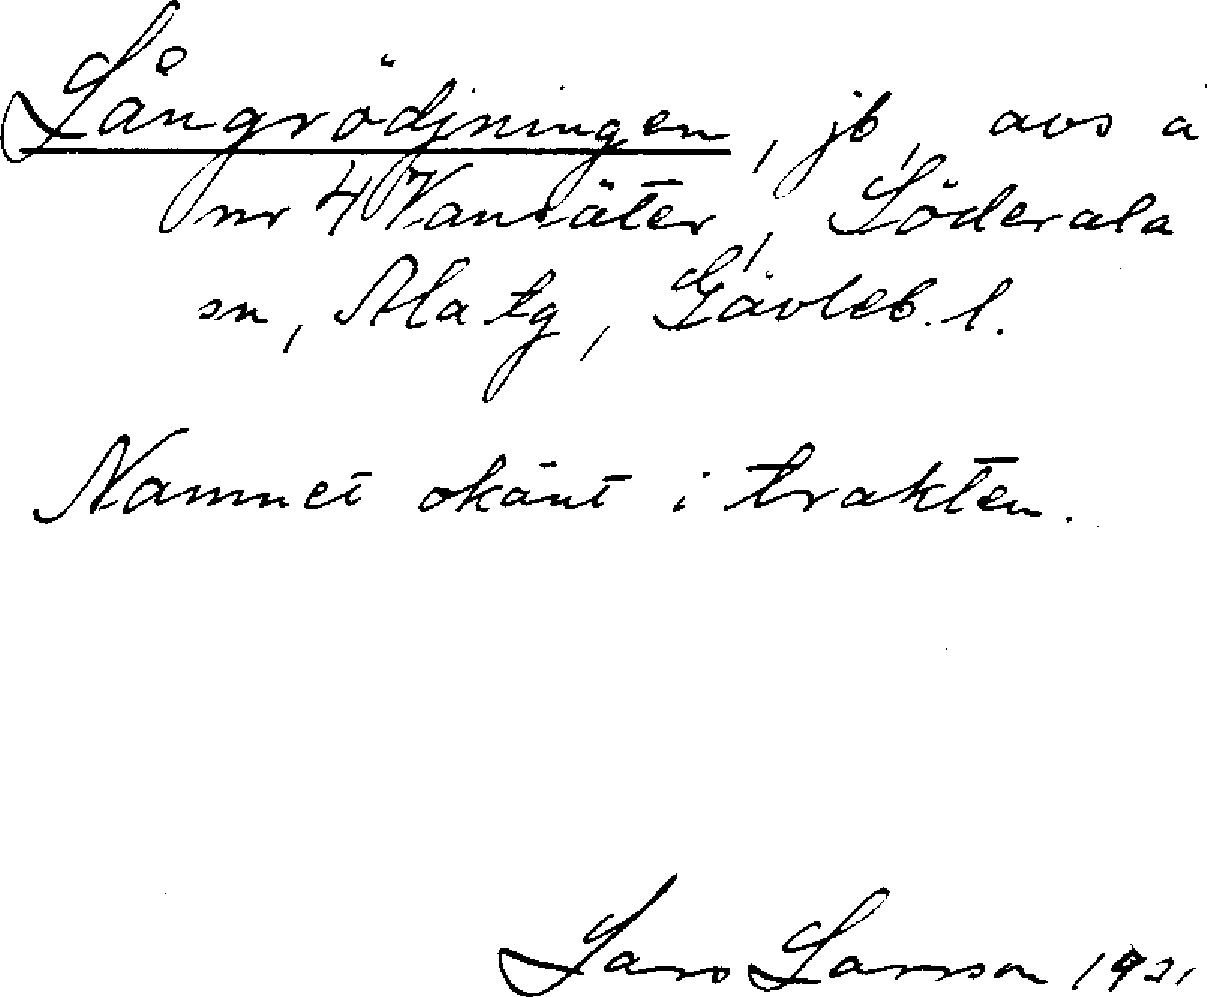 Långrödjningen, jb, avs å
nr 4 Vansäter, Söderala
sn, Ala tg, Gävleb. l.
Namnet okänt i trakten.
Lars Larsson 1921